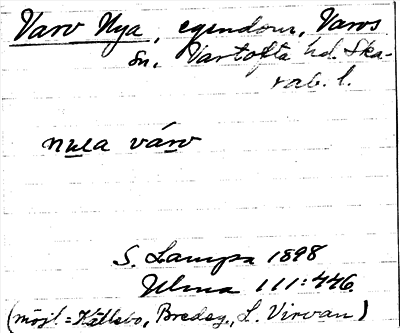 Varv Nya, egendom, Varvs
sn, Vartofta hd. Ska-
rab. l.
nua varv
S. Lampa 1898
Ulma 111:446.
(möjl. = Källebo, Bredeg., L. Virvan)